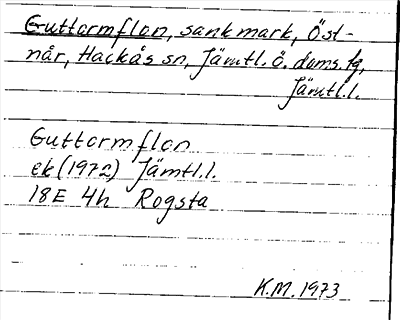 Guttormflon, sankmark, Öst-
når, Hackås sn, Jämtl. ö. doms. tg,
Jämtl.l.
Guttormflon
ek (1972) Jämtl.l.
18E 4h Rogsta
K.M. 1973